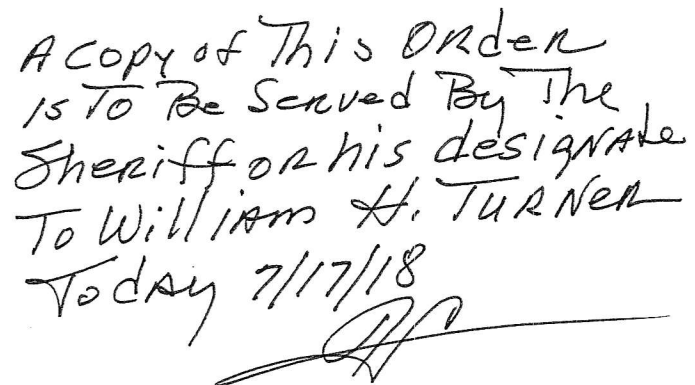 A Copy of This Order
is To Be Served By The
Sheriff or his designate
To William H. Turner
Today 7/17/18